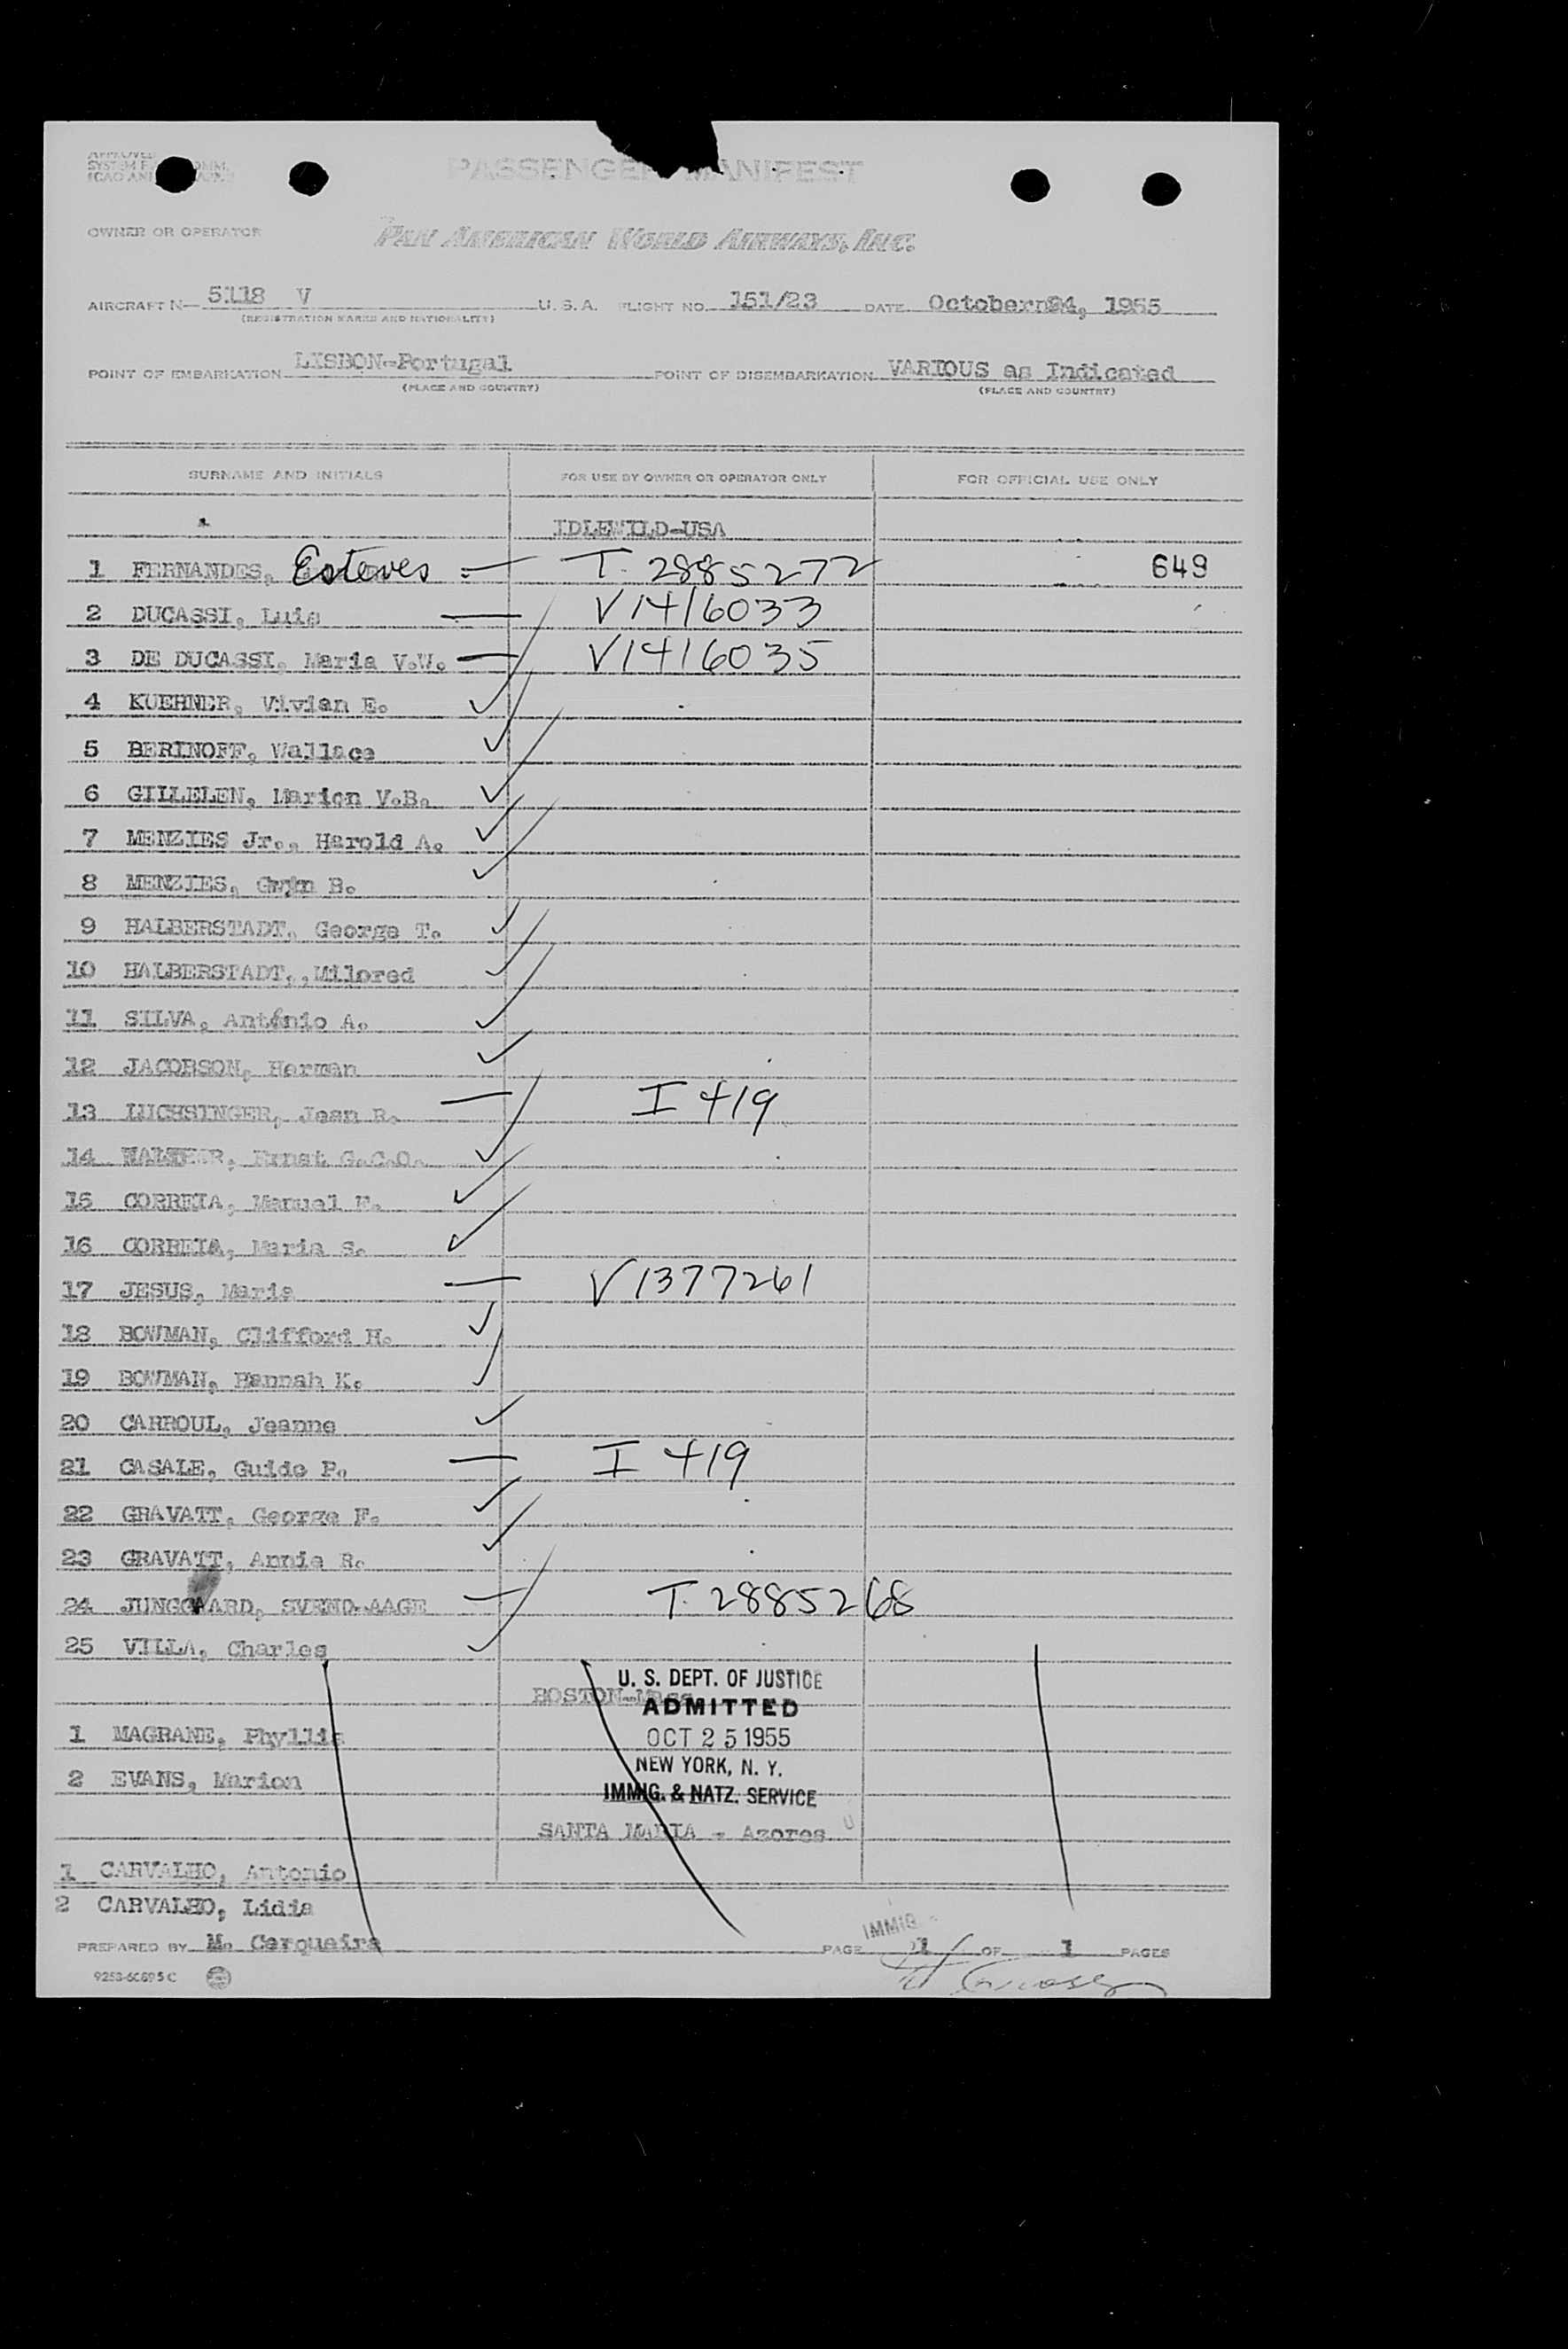 APPROVED
SYSTEM F COMM.
ICAO ANN
PASSENGER MANIFEST
OWNER OR OPERATOR PAN AMERICAN WORLD AIRWAYS, INC.
AIRCRAFT N— 5118 V U. S. A. FLIGHT NO. 151/23 DATE October 24, 1955
(REGISTRATION MARKS AND NATIONALITY)
POINT OF EMBARKATION LISBON-Portugal POINT OF DISEMBARKATION VARIOUS as Indicated
(PLACE AND COUNTRY) (PLACE AND COUNTRY)
SURNAME AND INITIALS FOR USE BY OWNER OR OPERATOR ONLY FOR OFFICIAL USE ONLY
IDLEWILD-USA
1 FERNANDES, Esteves — T. 2885272 649
2 DUCASSI, Luis — V1416033
3 DE DUCASSI, Maria V.W. — V1416035
4 KUEHNER, Vivian E. ✓
5 BERINOFF, Wallace ✓
6 GILLELEN, Marion V.B. ✓
7 MENZIES Jr., Harold A. ✓
8 MENZIES, Gwyn B. ✓
9 HALBERSTADT, George T. ✓
10 HALBERSTADT,,Milored ✓
11 SILVA, António A. ✓
12 JACOBSON, Herman ✓
13 LUCHSINGER, Jean R. — I 419
14 WALTHER, Ernst G.C.O. ✓
15 CORREIA, Manuel F. ✓
16 CORREIA, Maria S. ✓
17 JESUS, Maria — V1377261
18 BOWMAN, Clifford H. ✓
19 BOWMAN, Hannah K. ✓
20 CARROUL, Jeanne ✓
21 CASALE, Guido P. — I 419
22 GRAVATT, George F. ✓
23 GRAVATT, Annie R. ✓
24 JUNGGAARD, SVEND-AAGE — T. 2885268
25 VILLA, Charles ✓
U. S. DEPT. OF JUSTICE
BOSTON-Mass
ADMITTED
1 MAGRANE, Phyllis OCT 25 1955
NEW YORK, N. Y.
2 EVANS, Marion
IMMIG. & NATZ. SERVICE
SANTA MARIA - Azores
1 CARVALHO, Antonio
2 CARVALHO, Lidia
IMMIG
PREPARED BY M. Cerqueira PAGE 1 OF 1 PAGES